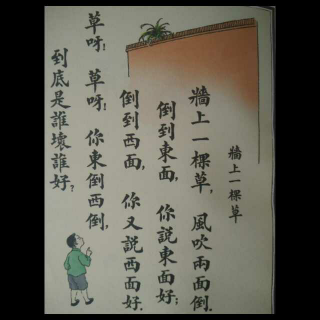 牆上一棵草
牆上一棵草，風吹兩面倒。
倒到東面，你說東面好；
倒到西面，你又說西面好。
草呀！草呀！你東倒西倒，
到底是誰壞誰好？